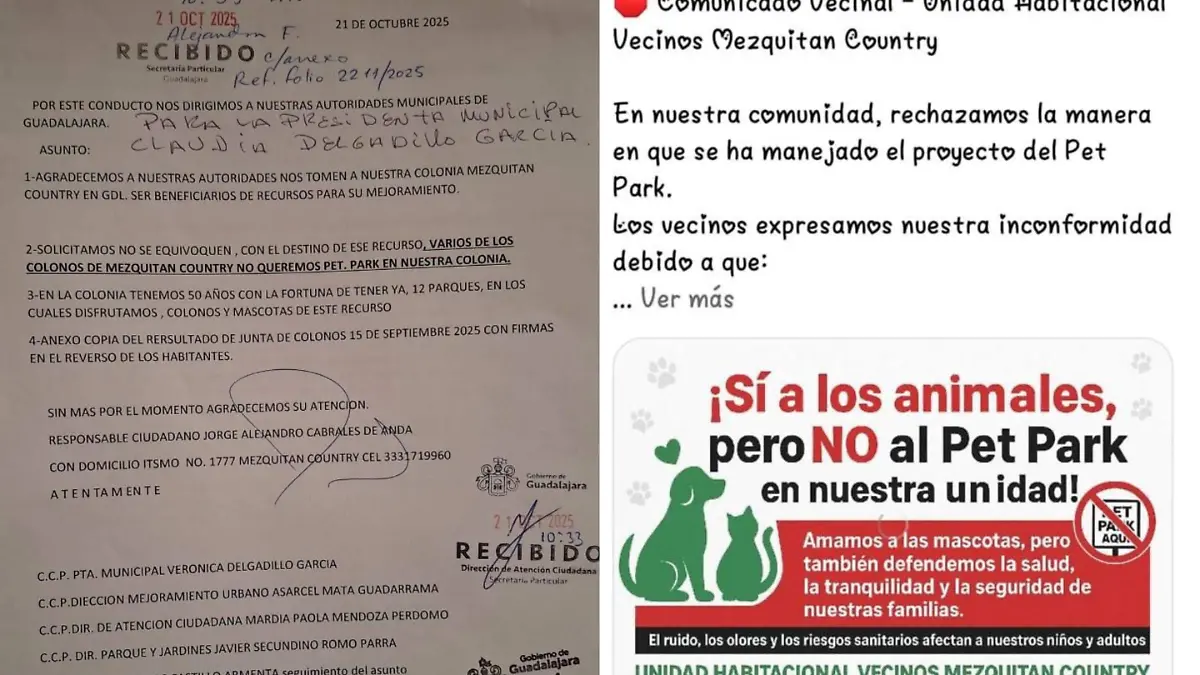 21 OCT 2025
21 DE OCTUBRE 2025
Alejandra F.
RECIBIDO c/anexo
Secretaría Particular
Guadalajara
Ref. folio 2211/2025
POR ESTE CONDUCTO NOS DIRIGIMOS A NUESTRAS AUTORIDADES MUNICIPALES DE
GUADALAJARA. PARA LA PRESIDENTA MUNICIPAL
ASUNTO: CLAUDIA DELGADILLO GARCIA.
1-AGRADECEMOS A NUESTRAS AUTORIDADES NOS TOMEN A NUESTRA COLONIA MEZQUITAN
COUNTRY EN GDL. SER BENEFICIARIOS DE RECURSOS PARA SU MEJORAMIENTO.
2-SOLICITAMOS NO SE EQUIVOQUEN , CON EL DESTINO DE ESE RECURSO, VARIOS DE LOS
COLONOS DE MEZQUITAN COUNTRY NO QUEREMOS PET. PARK EN NUESTRA COLONIA.
3-EN LA COLONIA TENEMOS 50 AÑOS CON LA FORTUNA DE TENER YA, 12 PARQUES, EN LOS
CUALES DISFRUTAMOS , COLONOS Y MASCOTAS DE ESTE RECURSO
4-ANEXO COPIA DEL RERSULTADO DE JUNTA DE COLONOS 15 DE SEPTIEMBRE 2025 CON FIRMAS
EN EL REVERSO DE LOS HABITANTES.
SIN MAS POR EL MOMENTO AGRADECEMOS SU ATENCION.
RESPONSABLE CIUDADANO JORGE ALEJANDRO CABRALES DE ANDA
CON DOMICILIO ITSMO NO. 1777 MEZQUITAN COUNTRY CEL 3331719960
ATENTAMENTE
Gobierno de
Guadalajara
2025
10:33
RECIBIDO
Dirección de Atención Ciudadana
Secretaría Particular
C.C.P. PTA. MUNICIPAL VERONICA DELGADILLO GARCIA
C.C.P.DIECCION MEJORAMIENTO URBANO ASARCEL MATA GUADARRAMA
C.C.P.DIR. DE ATENCION CIUDADANA MARDIA PAOLA MENDOZA PERDOMO
C.C.P. DIR. PARQUE Y JARDINES JAVIER SECUNDINO ROMO PARRA
ARMENTA seguimiento del asunto
Gobierno de
Guadalajara
Comunicado Vecinal - Unidad Habitacional
Vecinos Mezquitan Country
En nuestra comunidad, rechazamos la manera
en que se ha manejado el proyecto del Pet
Park.
Los vecinos expresamos nuestra inconformidad
debido a que:
... Ver más
¡Sí a los animales,
pero NO al Pet Park
en nuestra unidad!
PET
PARK
AQUÍ
Amamos a las mascotas, pero
también defendemos la salud,
la tranquilidad y la seguridad de
nuestras familias.
El ruido, los olores y los riesgos sanitarios afectan a nuestros niños y adultos
UNIDAD HABITACIONAL VECINOS MEZQUITAN COUNTRY